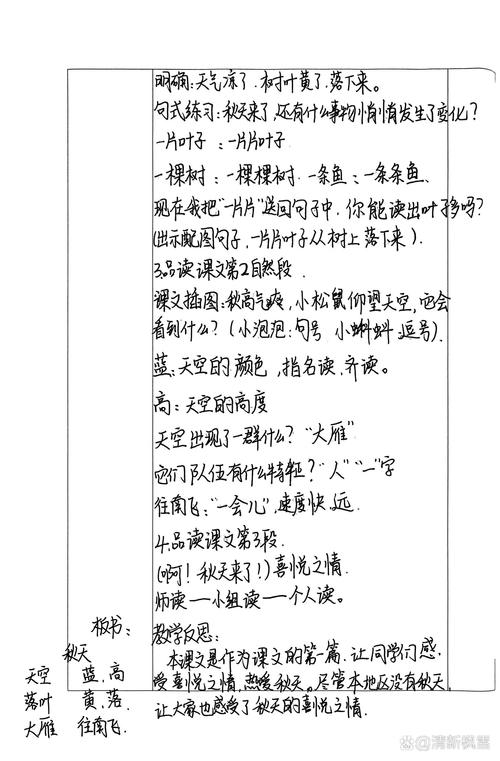 明确:天气凉了.树叶黄了.落下来。
句式练习:秋天来了,还有什么事物悄悄发生了变化?
一片叶子:一片片叶子
一棵树:一棵棵树.一条鱼:一条条鱼、
现在我把“一片片”送回句子中.你能读出叶子多吗?
(出示配图句子,一片片叶子从树上落下来).
3.品读课文第2自然段.
课文插图:秋高气爽,小松鼠仰望天空,它会
看到什么?(小泡泡:句号 小蝌蚪:逗号).
蓝:天空的颜色,指名读.齐读。
高:天空的高度
天空出现了一群什么?“大雁”
它们队伍有什么特征?“人”“一”字
往南飞:“一会儿”,速度快.远.
4.品读课文第3段.
(啊!秋天来了!)喜悦之情.
师读一小组读一个人读。
教学反思:
本课文是作为课文的第一篇.让同学们感
受喜悦之情,热爱秋天。尽管本地区没有秋天,
让大家也感受了秋天的喜悦之情.
板书:
秋天
天空 蓝、高
落叶 黄、落.
大雁 往南飞.
@清新枫雪